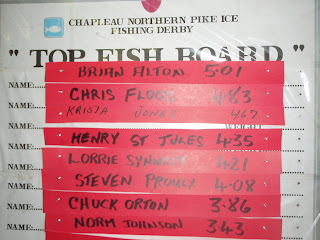 CHAPLEAU NORTHERN PIKE ICE
FISHING DERBY
" TOP FISH BOARD "
BRIAN ALTON 5.01
NAME:
CHRIS FLOOD 4.83
NAME:
KRISTA JONES 4.67
NAME: WEIGHT
HENRY ST JULES 4.35
NAME:
LORRIE 4.21
NAME:
STEVEN 4.08
NAME:
CHUCK ORTON 3.86
NAME:
NORM JOHNSON 3.43
NAME: